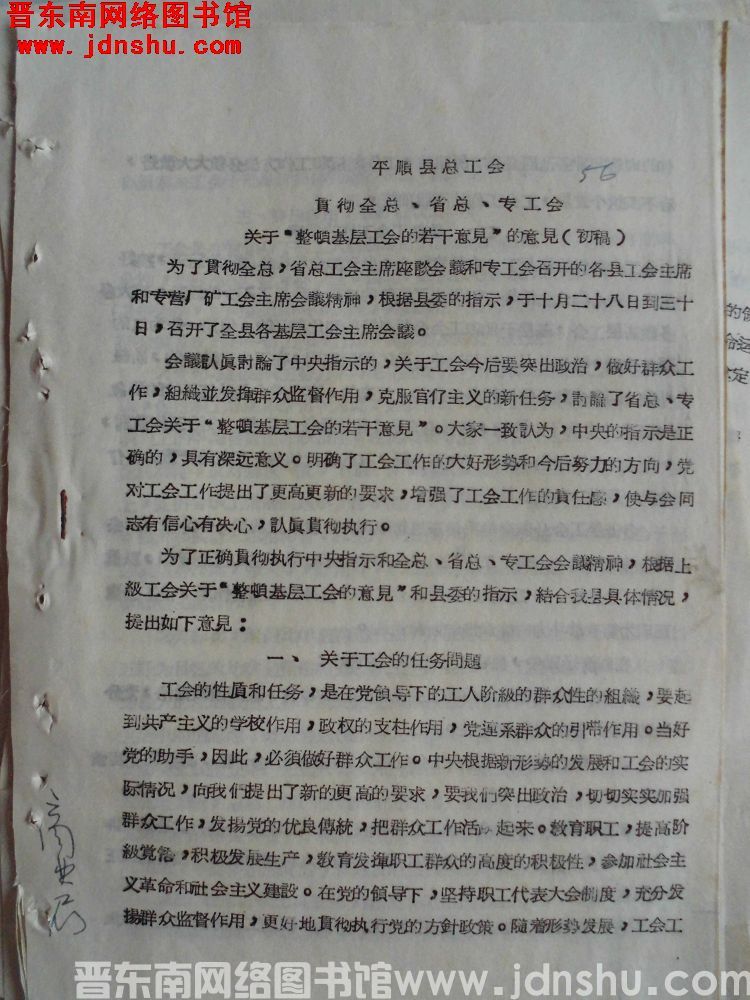 晋东南网络图书馆
www.jdnshu.com
平順县总工会
56
貫彻全总、省总、专工会
关于“整頓基层工会的若干意見”的意見(初稿)
为了貫彻全总，省总工会主席座談会議和专工会召开的各县工会主席
和专营厂矿工会主席会議精神，根据县委的指示，于十月二十八日到三十
日，召开了全县各基层工会主席会議。
会議認眞討論了中央指示的，关于工会今后要突出政治，做好群众工
作，組織並发揮群众监督作用，克服官仃主义的新任务，討論了省总、专
工会关于“整頓基层工会的若干意見”。大家一致認为，中央的指示是正
确的，具有深远意义。明确了工会工作的大好形势和今后努力的方向，党
对工会工作提出了更高更新的要求，增强了工会工作的責任感，使与会同
志有信心有决心，認眞貫彻执行。
为了正确貫彻执行中央指示和全总、省总、专工会会議精神，根据上
級工会关于“整頓基层工会的意見”和县委的指示，結合我县具体情况，
提出如下意見：
一、关于工会的任务問題
工会的性质和任务，是在党領导下的工人阶級的群众性的組織，要起
到共产主义的学校作用，政权的支柱作用，党連系群众的引带作用。当好
党的助手，因此，必須做好群众工作。中央根据新形势的发展和工会的实
际情况，向我們提出了新的更高的要求，要我們突出政治，切切实实加强
群众工作，发揚党的优良傳統，把群众工作活 起来。敎育职工，提高阶
級覚悟，积极发展生产，敎育发揮职工群众的高度的积极性，参加社会主
义革命和社会主义建設。在党的領导下，坚持职工代表大会制度，充分发
揚群众监督作用，更好地貫彻执行党的方針政策。随着形势发展，工会工
的領
会运
定
晋东南网络图书馆www.jdnshu.com